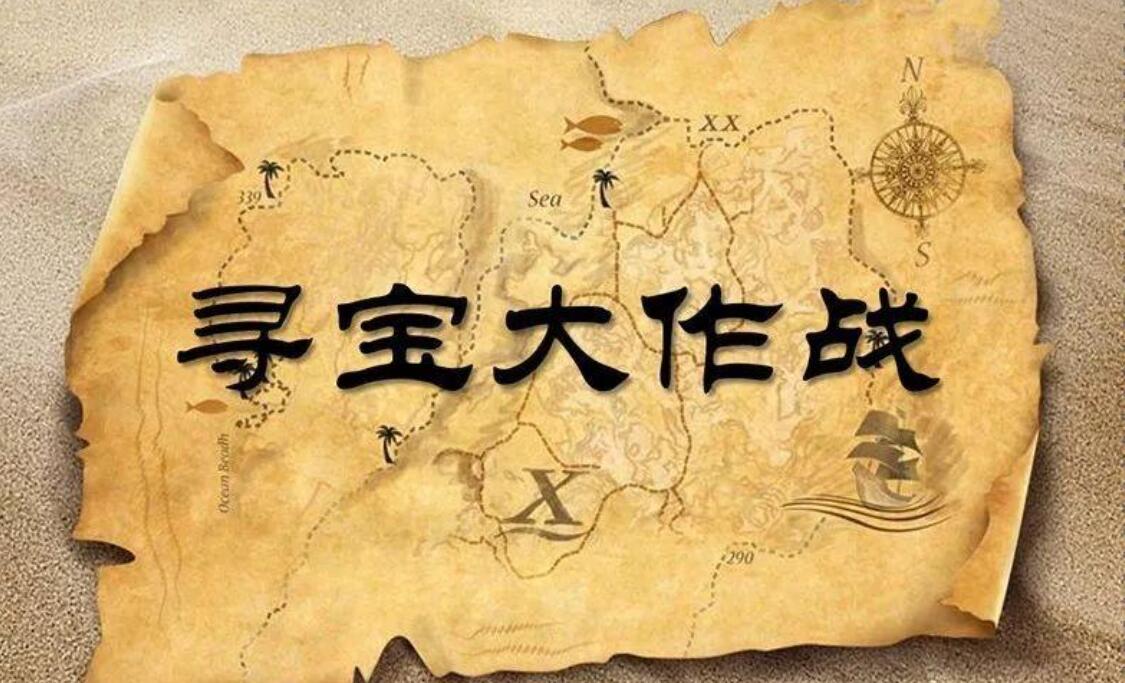 N
XX
339
Sea
S
寻宝大作战
Ocean Beadh
X
290